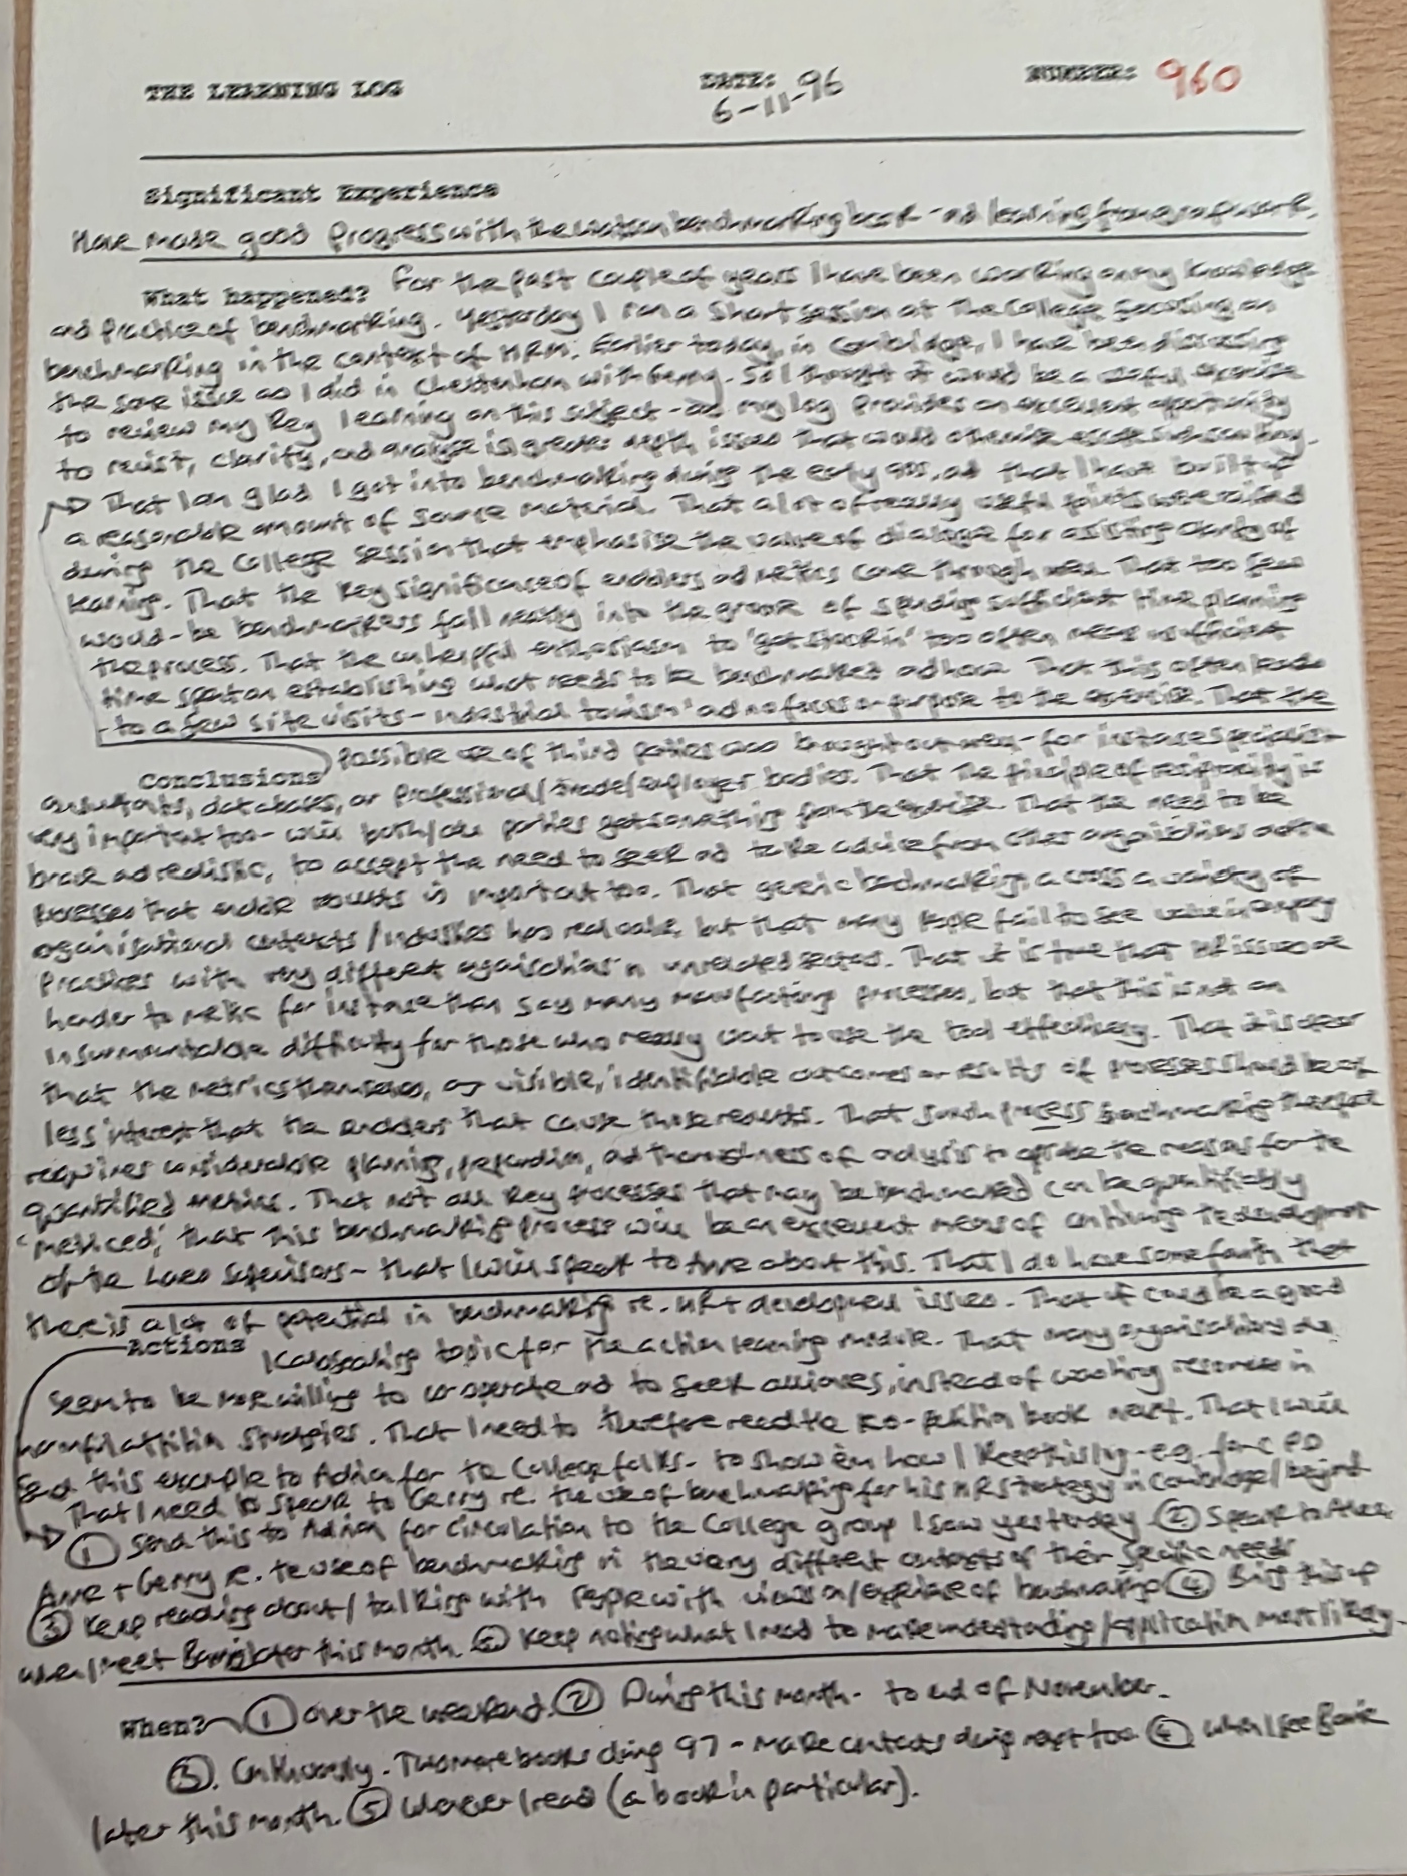 THE LEARNING LOG
DATE: 6-11-96
NUMBER: 960
Significant Experience
Have made good progress with the Watson benchmarking book - and learning from graft work.
What happened? For the past couple of years I have been working on my knowledge
and practice of benchmarking. Yesterday I ran a short session at the College focusing on
benchmarking in the context of HRM. Earlier today, in Cambridge, I have been discussing
the same issue as I did in Cheltenham with Gerry. So I thought it would be a useful exercise
to review my key learning on this subject - as my log provides an excellent opportunity
to revisit, clarify, and analyse in greater depth issues that would otherwise
That I am glad I got into benchmarking during the early 90s, and that I have built up
a reasonable amount of source material. That a lot of really useful points were raised
during the College session that emphasise the value of dialogue for assisting clarity of
learning. That the key significance of enablers and metrics came through well. That too few
would-be benchmarkers fall neatly into the groove of spending sufficient time planning
the process. That the unhelpful enthusiasm to 'get stuck in' too often means insufficient
time spent on establishing what needs to be benchmarked and how. That this often leads
to a few site visits - 'industrial tourism' and no focus or purpose to the exercise. That the
possible use of third parties also brought out well - for instance specialist
Conclusions
consultants, databases, or professional/trade/employer bodies. That the principle of reciprocity is
very important too - will both/all parties get something from the exercise. That the need to be
brave and realistic, to accept the need to seek and take advice from other organisations and the
processes that enable results is important too. That generic benchmarking, across a variety of
organisational contexts/industries has real value, but that many people fail to see value in
practices with very different organisations in unrelated sectors. That it is true that HR issues are
harder to metric for instance than say many manufacturing processes, but that this is not an
insurmountable difficulty for those who really want to use the tool effectively. That it is clear
that the metrics themselves, as visible, identifiable outcomes or results of processes should be of
less interest that the enablers that cause those results. That such process benchmarking therefore
requires considerable planning, preparation, and thoroughness of analysis to the reasons for the
quantified metrics. That not all key processes that may be benchmarked can be quantifiably
'metriced', that this benchmarking process will be an excellent means of continuing the development
of the supervisors - that I will speak to Anne about this. That I do have some faith that
there is a lot of potential in benchmarking re. HR + development issues. That it could be a good
Actions
topic for the action learning module. That many organisations do
seem to be more willing to co-operate and to seek alliances, instead of wasting resources in
harmful attrition strategies. That I need to therefore read the co-petition book next. That I will
send this example to Adrian for the College folks - to show em how I keep this log - e.g. for CPD
That I need to speak to Gerry re. the use of benchmarking for his HR strategy in Cambridge/beyond
① Send this to Adrian for circulation to the College group I saw yesterday ② Speak to
Anne + Gerry re. the use of benchmarking in the very different contexts of their specific needs
③ Keep reading about/talking with people with views on/experience of benchmarking ④ Bring this up
when I meet later this month. ⑤ Keep noting what I read to make understanding/application most likely.
When? ① Over the weekend. ② During this month - to end of November.
③. Continuously. Two more books during 97 - make contacts during next too ④ When I see
later this month. ⑤ Whenever I read (a book in particular).